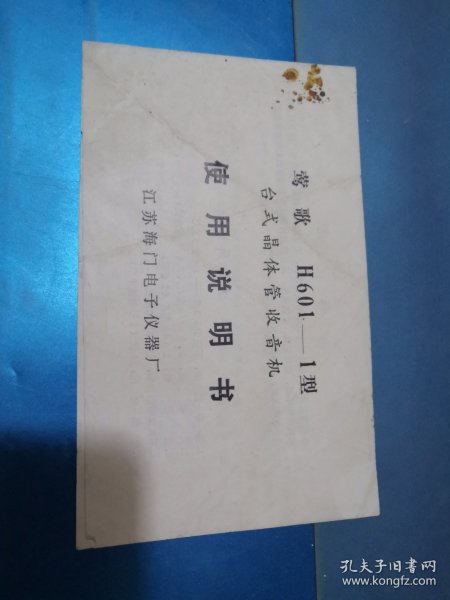 莺歌 H601—1型
台式晶体管收音机
使用说明书
江苏海门电子仪器厂
孔夫子旧书网
www.kongfz.com